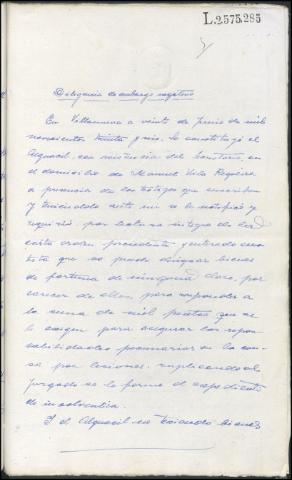 L.2575.285
Diligencia de embargo negativo
En Villanueva a veinte de Junio de mil
novecientos treinta y seis, se constituyó el
Alguacil, con asistencia del Secretario, en
el domicilio de Manuel Vila
a presencia de los testigos que suscriben
y le notificó y
requirió, por lectura integra de la
carta orden precedente, y enterado con-
testa que no puede designar bienes
de fortuna de ninguna clase, por
carecer de ellos, para responder a
la suma de mil pesetas que se
le exigen para asegurar las respon-
sabilidades pecuniarias en la cau-
sa por lesiones, suplicando al
Juzgado se le forme el expediente
de insolvencia.
Y el Alguacil no teniendo bienes